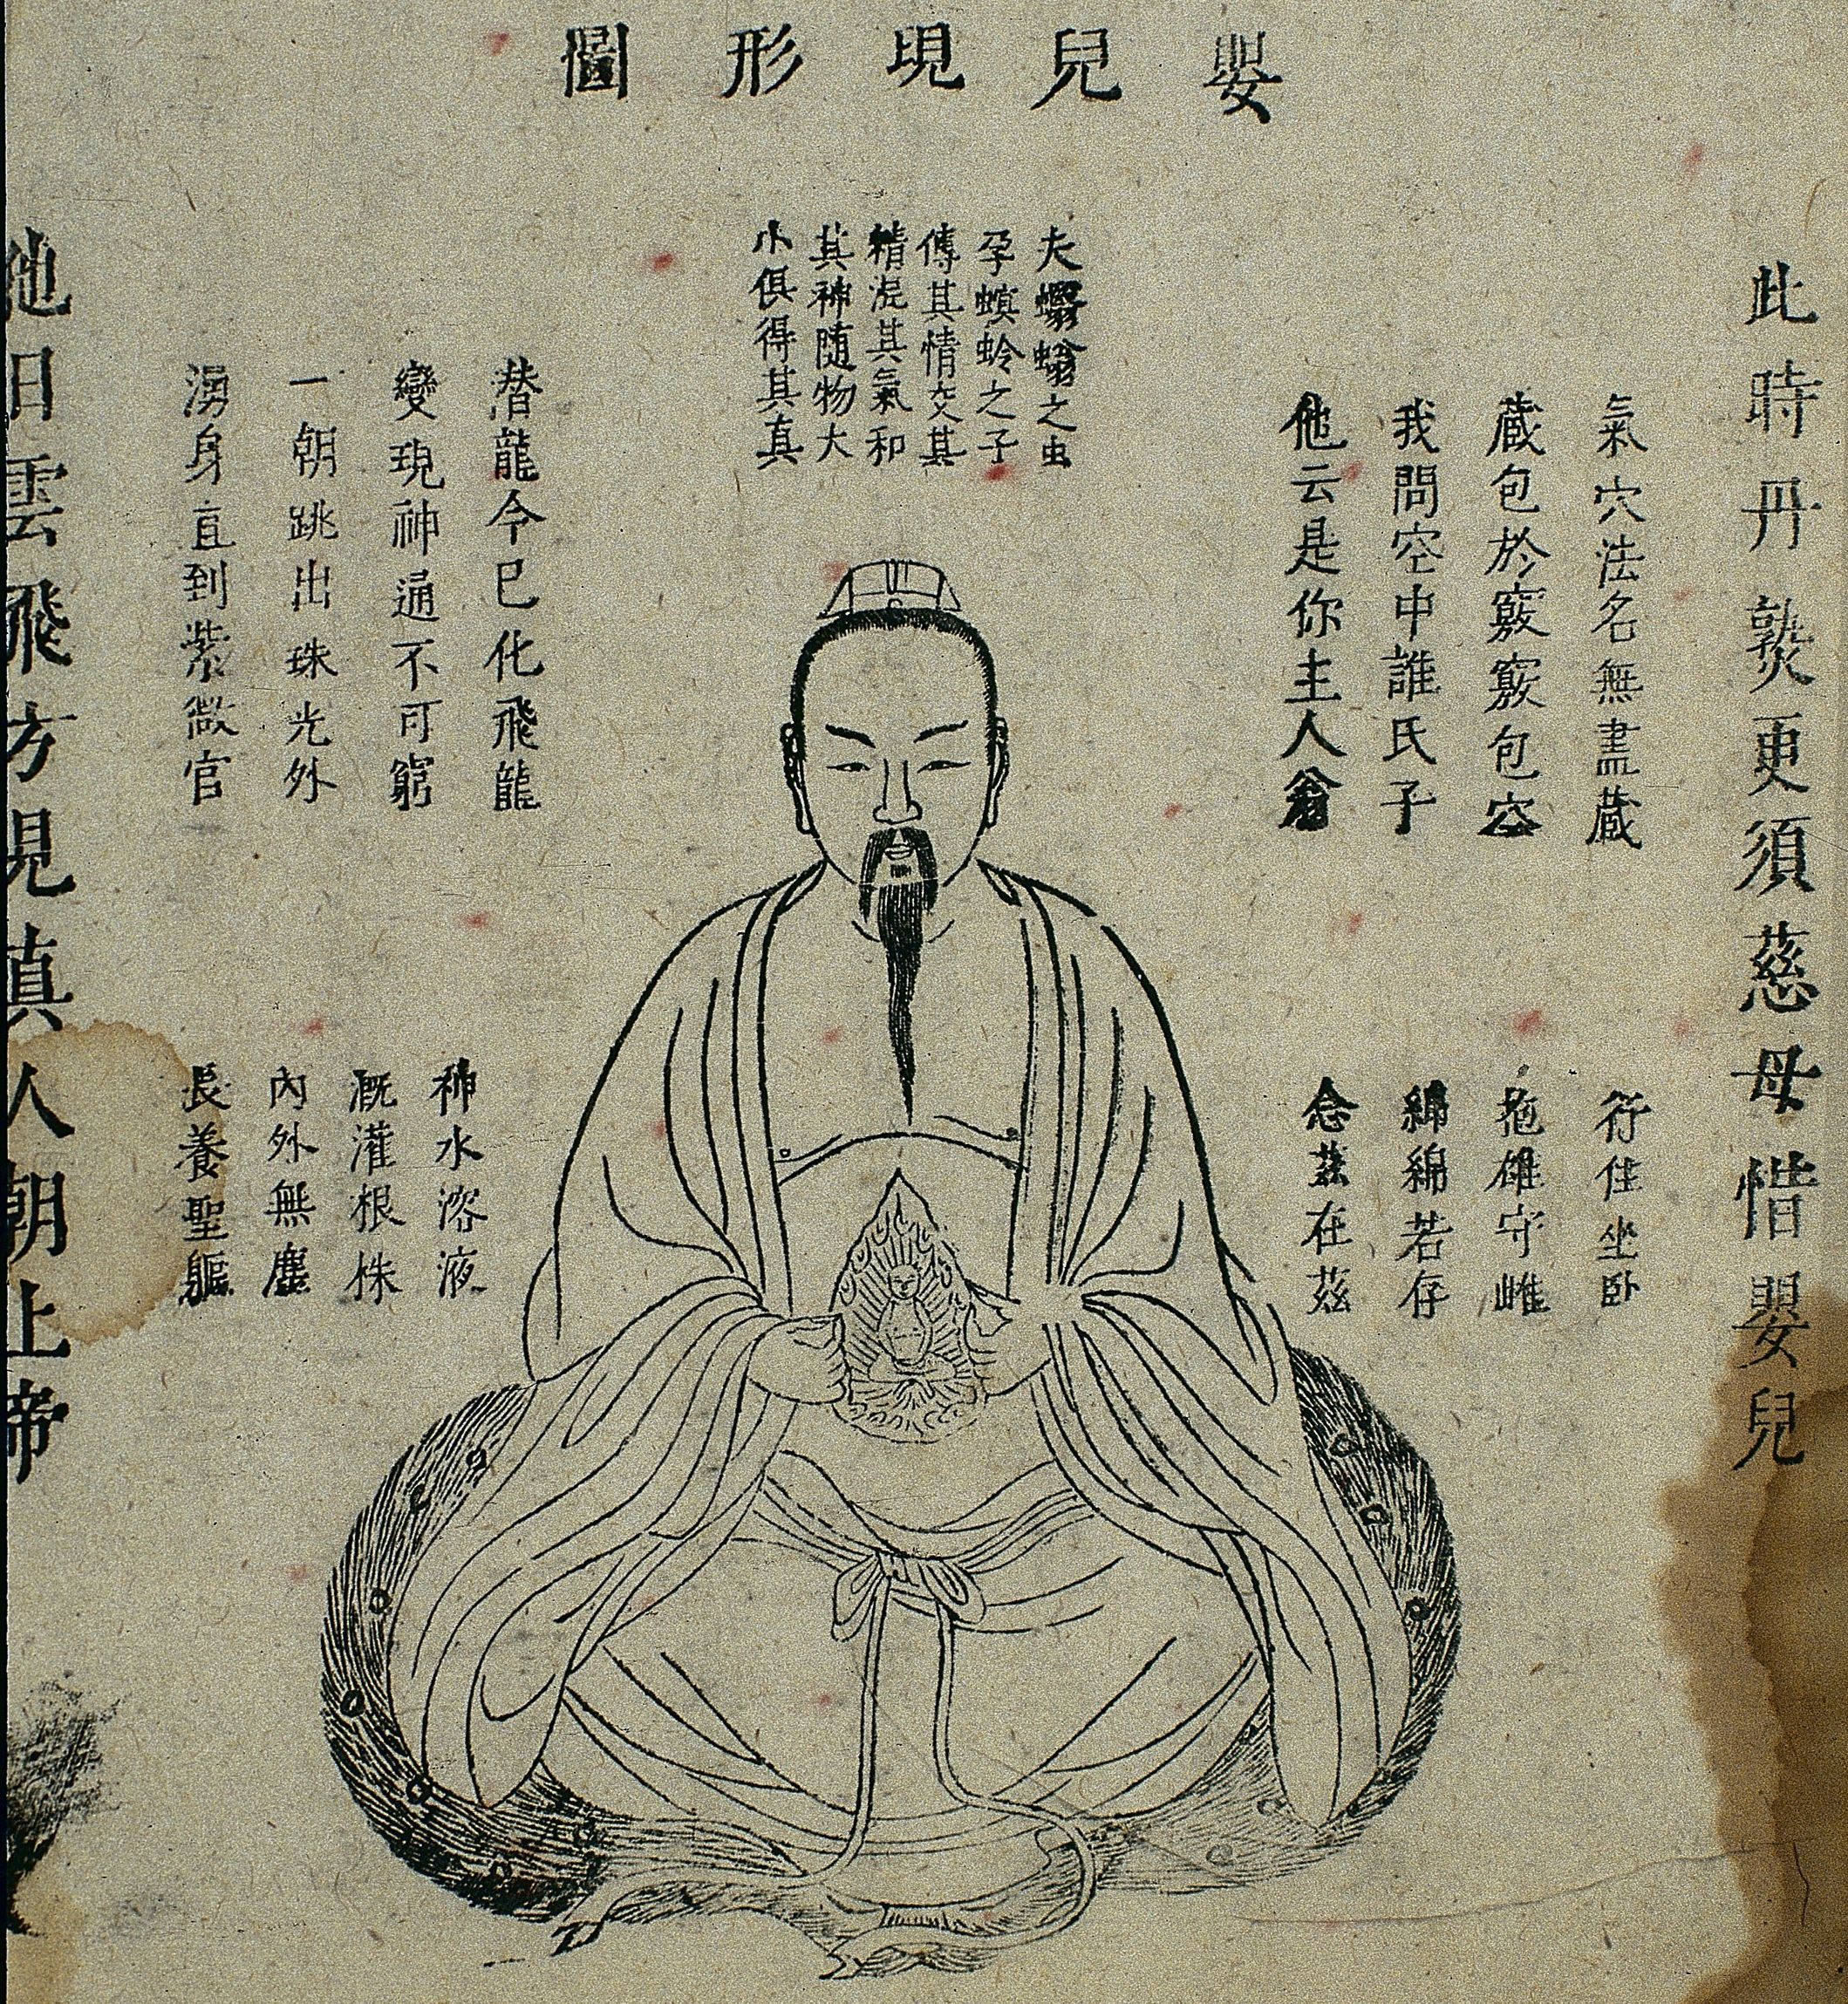 嬰兒現形圖
此時丹熟更須慈母惜嬰兒
氣穴法名無盡藏
藏包於竅竅包空
我問空中誰氏子
他云是你主人翁
行住坐卧
抱雄守雌
綿綿若存
念茲在茲
夫蠮螉之虫
孕螟蛉之子
傳其情交其
精混其氣和
其神随物大
小俱得其真
潜龍今已化飛龍
變現神通不可窮
一朝跳出珠光外
湧身直到紫微宫
神水溶液
溉灌根株
內外無塵
長養聖軀
他日雲飛方見眞人朝上帝